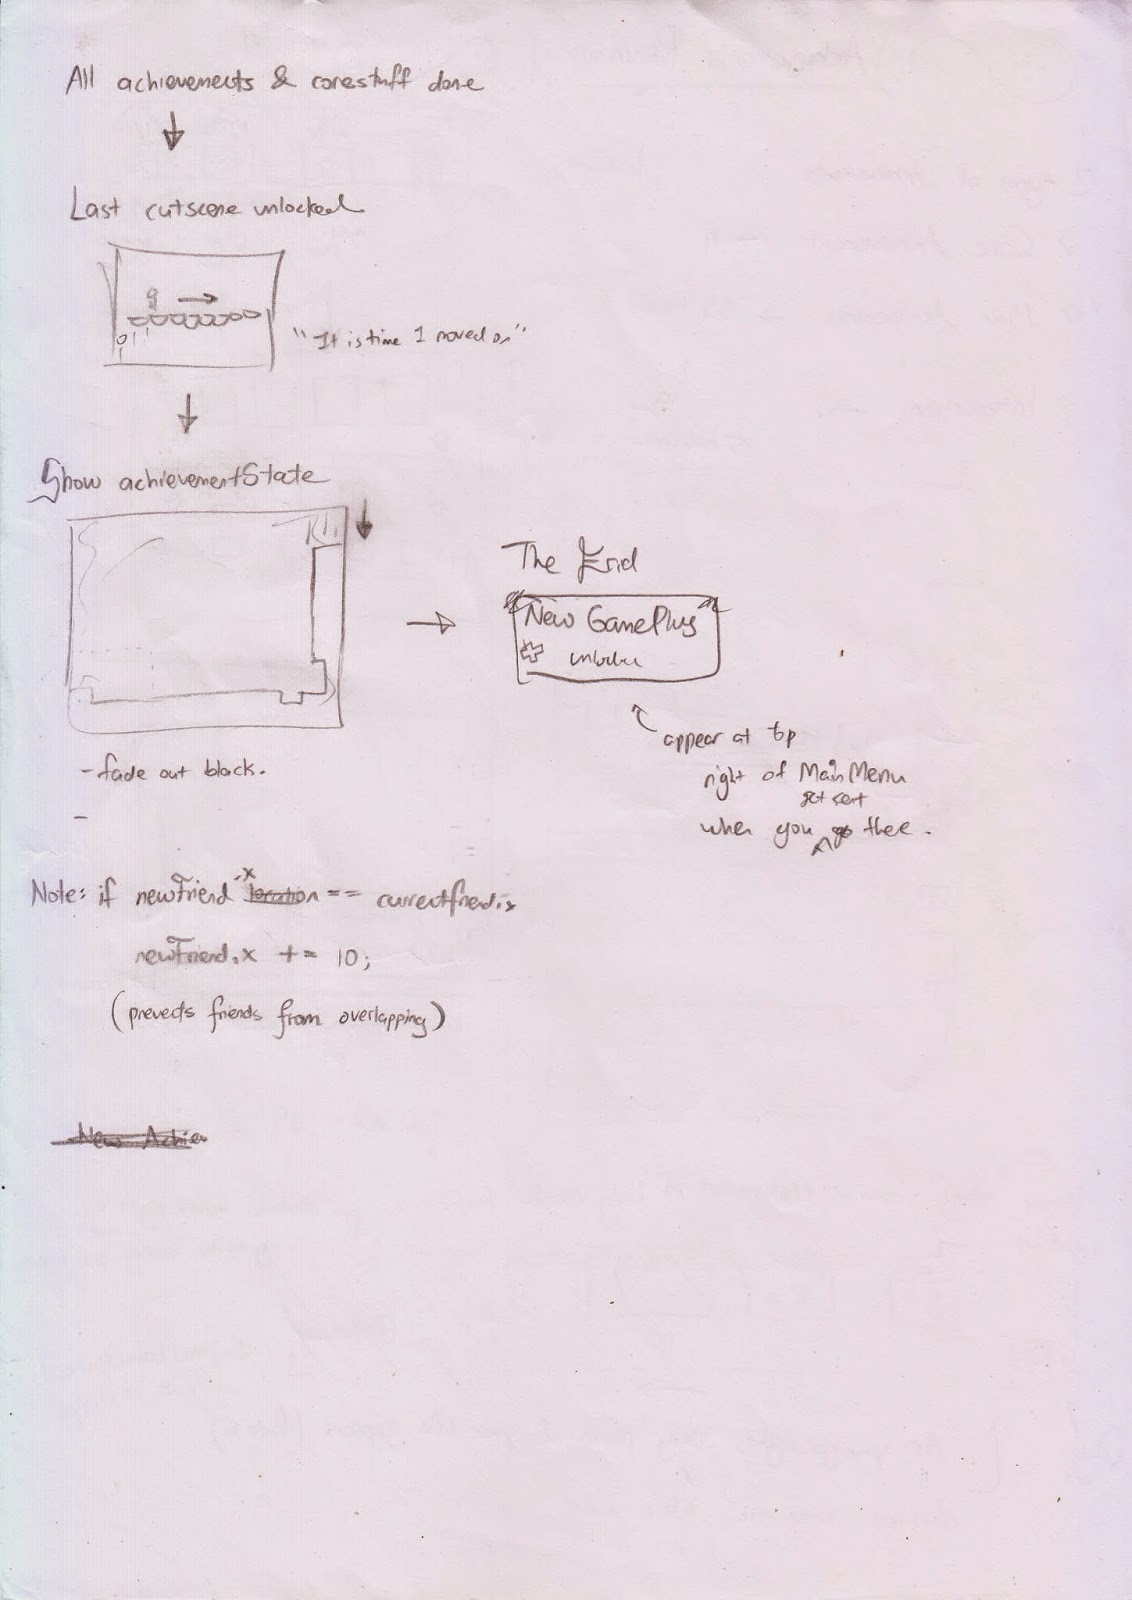 All achievements & corestuff done
Last cutscene unlocked
"It is time I moved on"
Show achievementState
The End
New GamePlus
unlocked
appear at top
right of Main Menu
get sent
when you go there.
-fade out black.
-
Note: if newFriend.x location == currentfriend.x
newFriend.x += 10;
(prevents friends from overlapping)
New Achiev